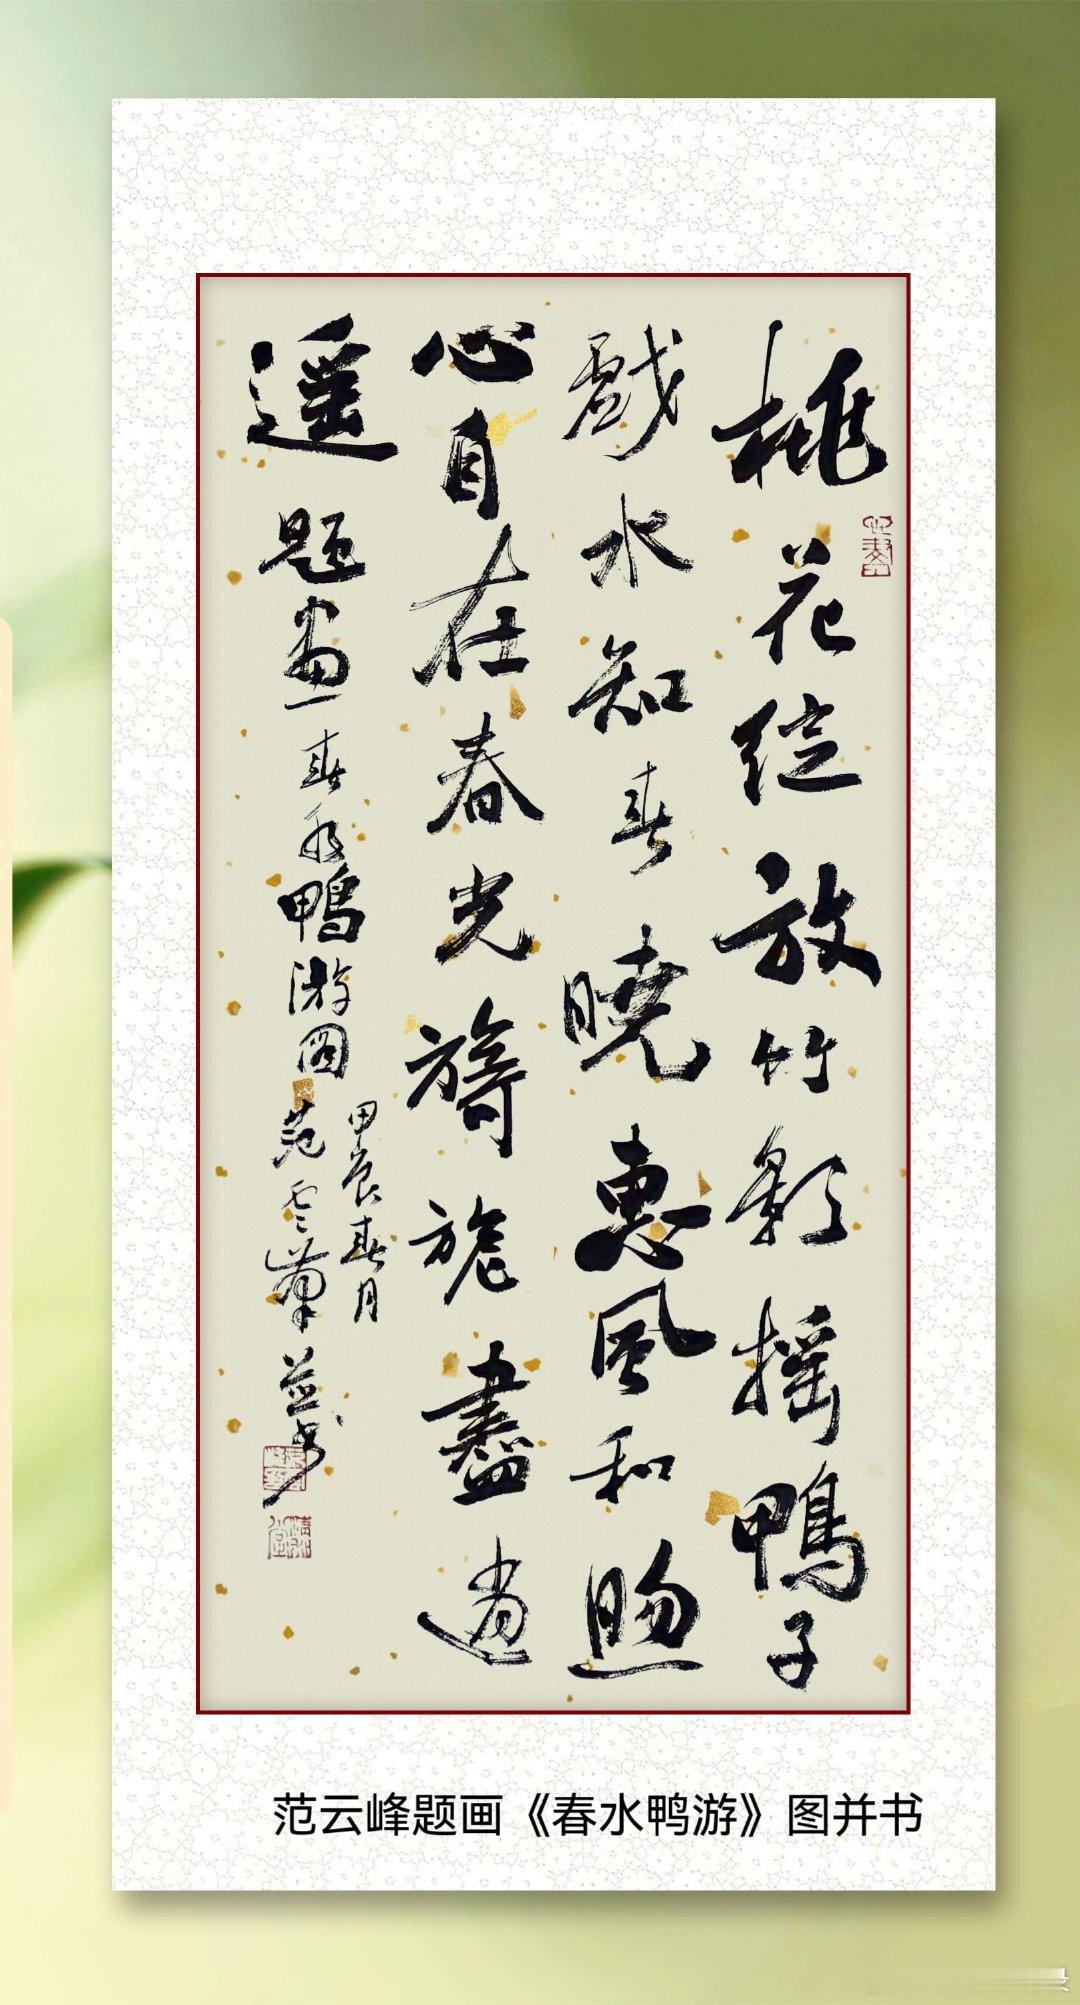 桃花绽放竹影摇鸭子
戏水知春晓惠风和煦
心自在春光旖旎尽逍
遥 题画春水鸭游图 范云峰并书
甲辰春月
范云峰题画《春水鸭游》图并书